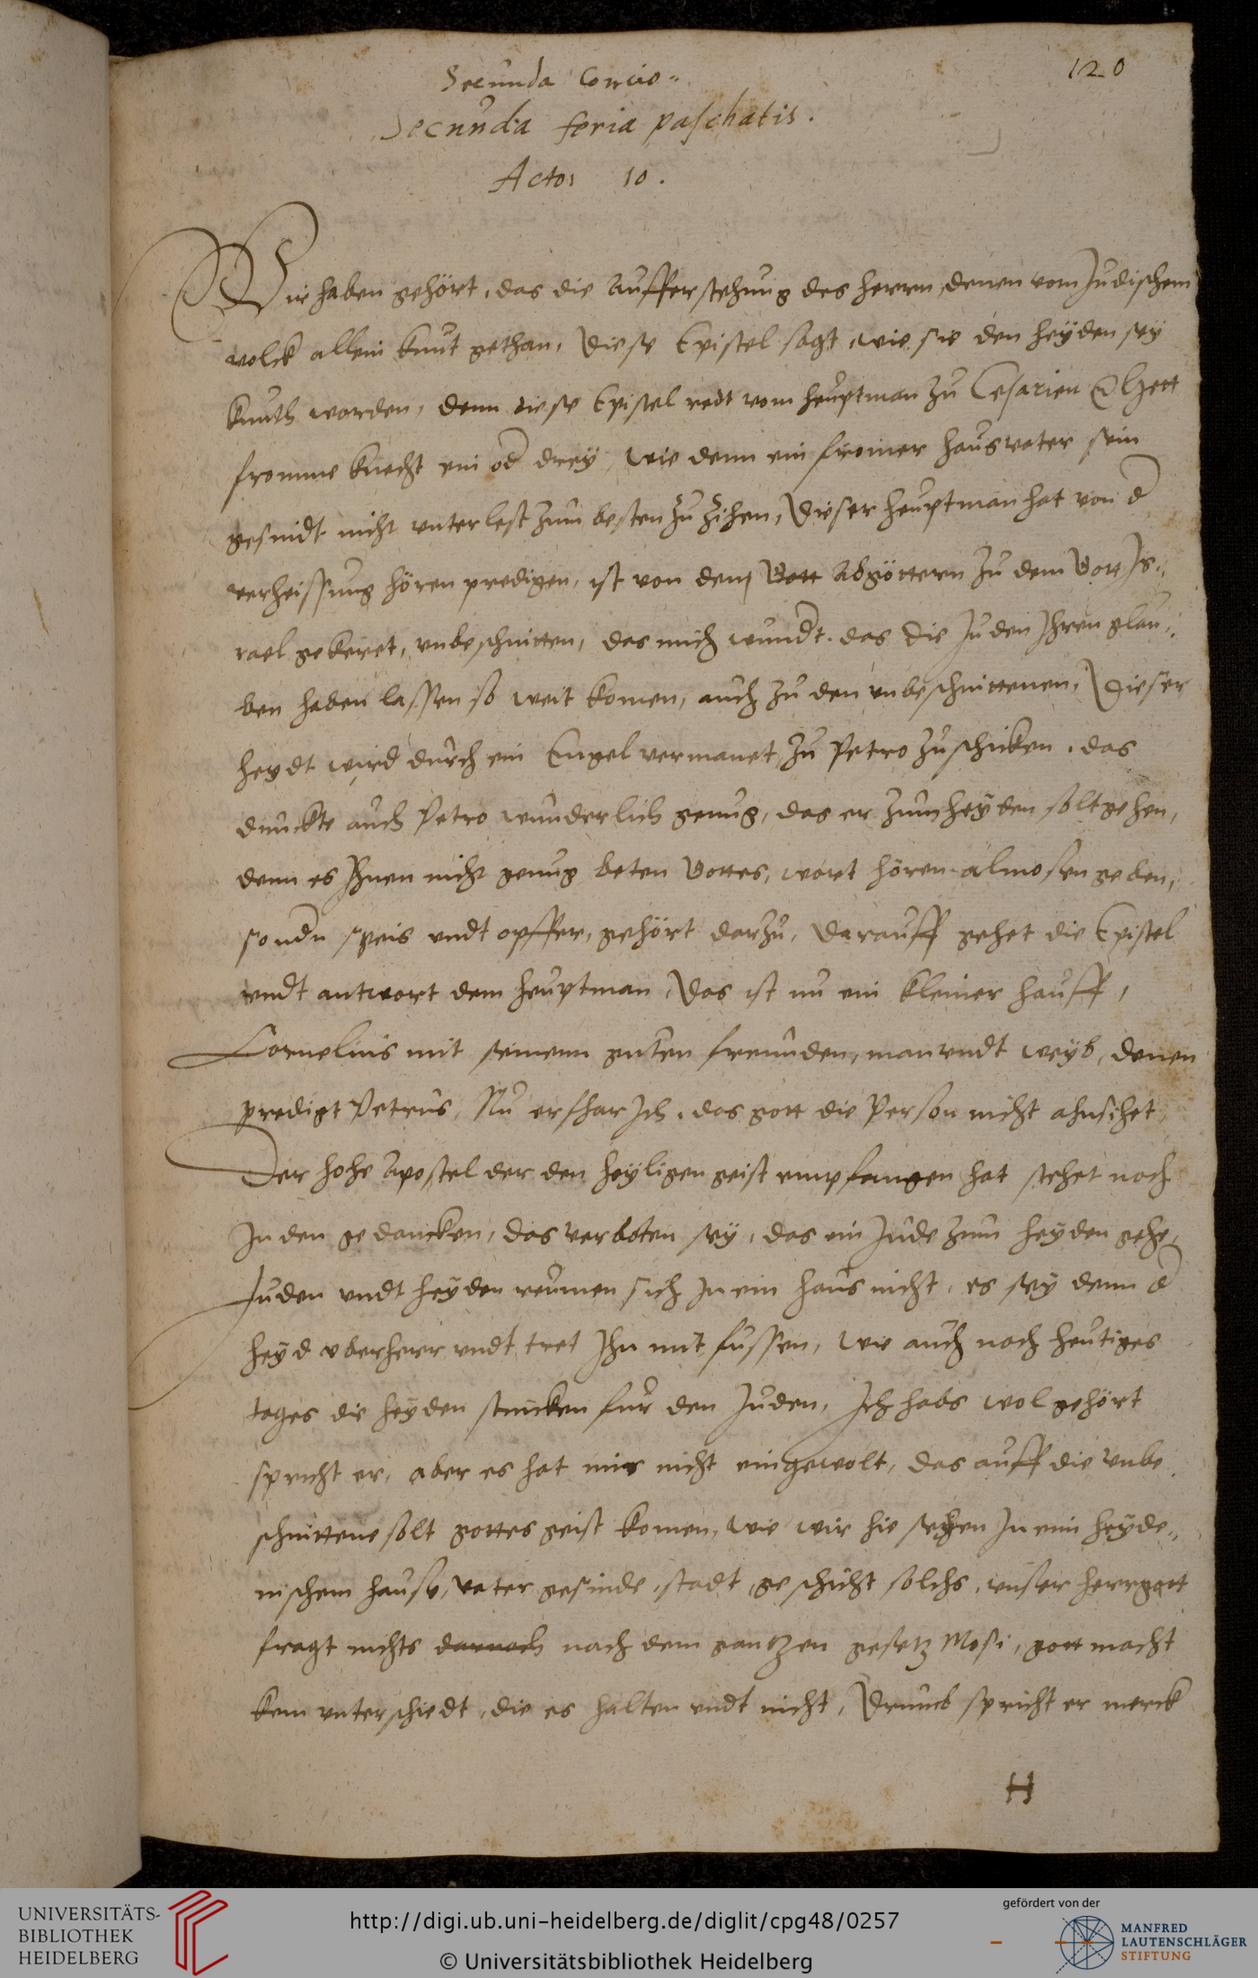 120
Secunda Concio
Secunda feria paschatis.
Actor 10.
Wir haben gehört, das die Aufferstehung des herrn, denen vom Judischem
volck allein kunt gethan, Diese Epistel sagt, wie sie den heyden sey
kunth worden, denn diese Epistel redt vom heuptman zu Cesarien
fromme knecht ein od drey, wie denn ein fromer hausvater sein
gesindt nicht unterlest zum besten zu zihen, Dieser heuptman hat von d
verheissung hören predigen, ist von dem Gott Abgöttern zu dem Gott Is-
rael gekeret, unbeschnitten, das mich wundt. das die Juden Ihren glau-
ben haben lassen so weit komen, auch zu den unbeschnittenen, Dieser
heydt wird durch ein Engel vermanet, zu Petro zuschicken. das
dunckte auch Petro wunderlich genug, das er zum heyden solt gehen,
denn es Ihnen nicht genug beten Gottes, wort hören almosen geben,
sondn speis undt opffer, gehört darzu, darauff gehet die Epistel
undt antwort dem heuptman, Das ist nu ein kleiner hauff,
Cornelius mit seinenn guten freunden, man undt weyb, denen
predigt Petrus, Nu erfhar Ich, das gott die Person nicht ahnsihet
Der hohe Apostel der den heyligen geist empfangen hat stehet noch
In den gedancken, das verboten sey, das ein Jude zum heyden gehe,
Juden undt heyden reumen sich In ein haus nicht, es sey denn d
heyd uberherr undt tret Ihn mit fussen, wie auch noch heutiges
tages die heyden stincken fur den Juden, Ich habs wol gehört
spricht er, aber es hat mir nicht eingewolt, das auff die unbe
schnittene solt gottes geist komen, wie wir hie sehen In eim heyde-
nischem hause, vater gesinde, stadt, geschicht solchs, unser herrgott
fragt nichts darnach nach dem gantzen gesetz Mosi, gott macht
kein unterschiedt, die es halten undt nicht, Drumb spricht er merck
H
UNIVERSITÄTS-
BIBLIOTHEK
HEIDELBERG
http://digi.ub.uni-heidelberg.de/diglit/cpg48/0257
© Universitätsbibliothek Heidelberg
gefördert von der
MANFRED
LAUTENSCHLÄGER
STIFTUNG